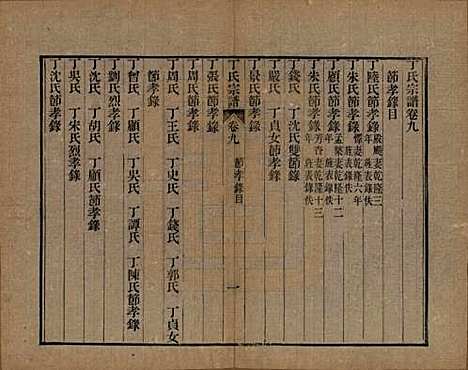 丁氏宗譜卷九
節孝錄目
丁陸氏節孝錄 殿颺妻乾隆三年旌表錄佚
丁朱氏節孝錄 妻乾隆六年旌表錄佚
丁顧氏節孝錄 妻乾隆十二年旌表錄佚
丁朱氏節孝錄 芳杏妻乾隆十三年旌表錄佚
丁錢氏 丁沈氏雙節錄
丁嚴氏 丁貞女節孝錄
丁景氏節孝錄
丁氏宗譜 卷九 節孝錄目 一
丁張氏節孝錄
丁周氏節孝錄
丁周氏 丁王氏 丁史氏 丁錢氏 丁郭氏 丁貞女
節孝錄
丁曾氏 丁顧氏 丁吳氏 丁譚氏 丁陳氏節孝錄
丁劉氏烈孝錄
丁沈氏 丁胡氏 丁顧氏節孝錄
丁吳氏 丁宋氏烈孝錄
丁沈氏節孝錄